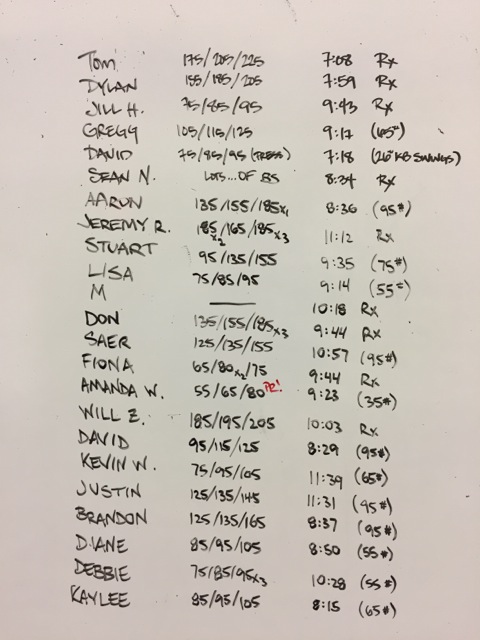 Tom 175/205/225 7:08 Rx
DYLAN 155/185/205 7:59 Rx
JILL H. 75/85/95 9:43 Rx
GREGG 105/115/125 9:17 (65#)
DAVID 75/85/95 (PRESS) 7:18 (26# KB SWINGS)
SEAN N. LOTS...OF BS 8:34 Rx
AARON 135/155/185x1 8:36 (95#)
JEREMY R. 185x2/165/185x3 11:12 Rx
STUART 95/135/155 9:35 (75#)
LISA 75/85/95 9:14 (55#)
M — 10:18 Rx
DON 135/155/185x3 9:44 Rx
SAER 125/135/155 10:57 (95#)
FIONA 65/80x2/75 9:44 Rx
AMANDA W. 55/65/80 PR! 9:23 (35#)
WILL Z. 185/195/205 10:03 Rx
DAVID 95/115/125 8:29 (95#)
KEVIN W. 75/95/105 11:39 (65#)
JUSTIN 125/135/145 11:31 (95#)
BRANDON 125/135/165 8:37 (95#)
DIANE 85/95/105 8:50 (55#)
DEBBIE 75/85/95x3 10:28 (55#)
KAYLEE 85/95/105 8:15 (65#)